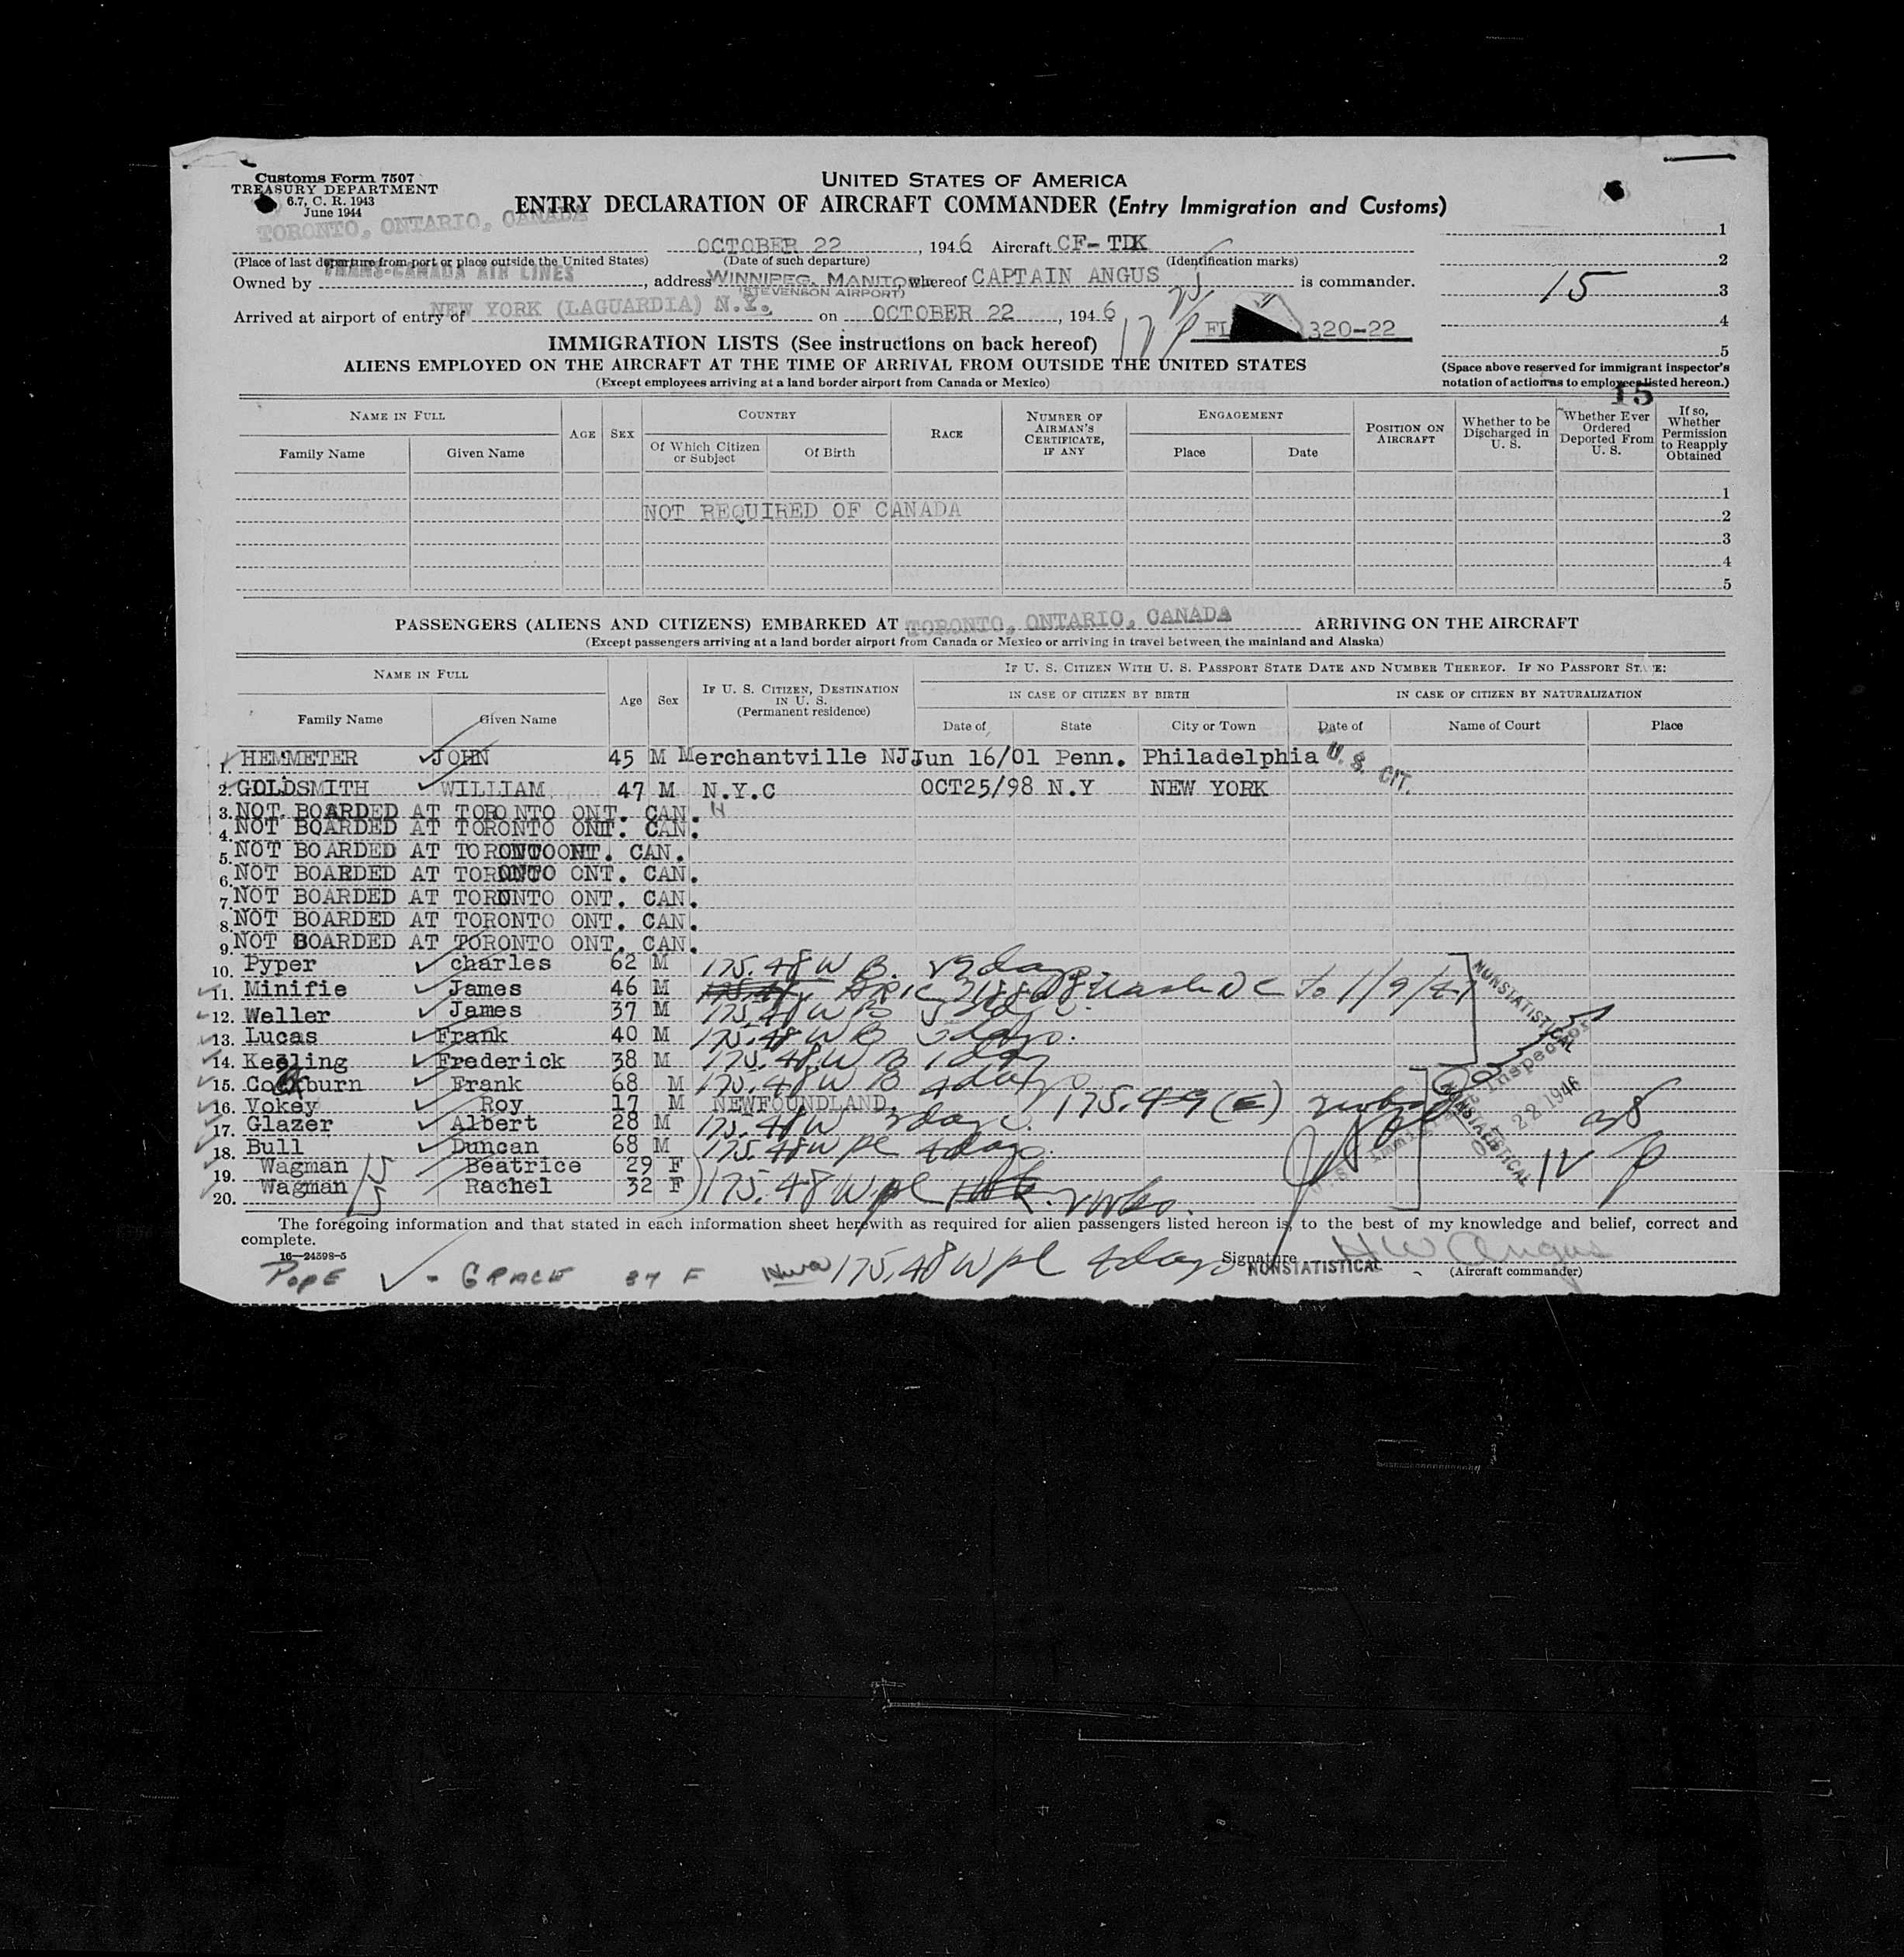 Customs Form 7507
TREASURY DEPARTMENT
6.7, C. R. 1943
June 1944
UNITED STATES OF AMERICA
ENTRY DECLARATION OF AIRCRAFT COMMANDER (Entry Immigration and Customs)
TORONTO, ONTARIO, CANADA OCTOBER 22, 1946 Aircraft CF-TIK
(Place of last departure from port or place outside the United States) (Date of such departure) (Identification marks)
Owned by TRANS-CANADA AIR LINES, address WINNIPEG, MANITO whereof CAPTAIN ANGUS is commander.
(STEVENSON AIRPORT)
Arrived at airport of entry of NEW YORK (LAGUARDIA) N.Y. on OCTOBER 22, 1946
320-22
1
2
15 3
4
5
(Space above reserved for immigrant inspector's notation of action as to employees listed hereon.)
15
IMMIGRATION LISTS (See instructions on back hereof)
ALIENS EMPLOYED ON THE AIRCRAFT AT THE TIME OF ARRIVAL FROM OUTSIDE THE UNITED STATES
(Except employees arriving at a land border airport from Canada or Mexico)
NAME IN FULL AGE SEX COUNTRY RACE NUMBER OF AIRMAN'S CERTIFICATE, IF ANY ENGAGEMENT POSITION ON AIRCRAFT Whether to be Discharged in U. S. Whether Ever Ordered Deported From U. S. If so, Whether Permission to Reapply Obtained
Family Name Given Name Of Which Citizen or Subject Of Birth Place Date
1
NOT REQUIRED OF CANADA 2
3
4
5
PASSENGERS (ALIENS AND CITIZENS) EMBARKED AT TORONTO, ONTARIO, CANADA ARRIVING ON THE AIRCRAFT
(Except passengers arriving at a land border airport from Canada or Mexico or arriving in travel between the mainland and Alaska)
NAME IN FULL Age Sex IF U. S. CITIZEN, DESTINATION IN U. S. (Permanent residence) IF U. S. CITIZEN WITH U. S. PASSPORT STATE DATE AND NUMBER THEREOF. IF NO PASSPORT STATE:
IN CASE OF CITIZEN BY BIRTH IN CASE OF CITIZEN BY NATURALIZATION
Family Name Given Name Date of State City or Town Date of Name of Court Place
1. HEMMETER JOHN 45 M Merchantville NJ Jun 16/01 Penn. Philadelphia U. S. CIT.
2. GOLDSMITH WILLIAM 47 M N.Y.C OCT25/98 N.Y NEW YORK
3. NOT BOARDED AT TORONTO ONT. CAN.
4. NOT BOARDED AT TORONTO ONT. CAN.
5. NOT BOARDED AT TORONTO ONT. CAN.
6. NOT BOARDED AT TORONTO ONT. CAN.
7. NOT BOARDED AT TORONTO ONT. CAN.
8. NOT BOARDED AT TORONTO ONT. CAN.
9. NOT BOARDED AT TORONTO ONT. CAN.
10. Pyper charles 62 M 175.48 W B. 29 days
11. Minifie James 46 M Wash DC to 1/9/47
12. Weller James 37 M 175.48 W B
13. Lucas Frank 40 M 175.48 W B days.
14. Keeling Frederick 38 M 175.48 W B 1 day
15. burn Frank 68 M 175.48 W B 4 days
16. Vokey Roy 17 M NEWFOUNDLAND 175.49 (E)
17. Glazer Albert 28 M 175.48 W 3 days.
18. Bull Duncan 68 M 175.48 W pl 4 days.
19. Wagman Beatrice 29 F
20. Wagman Rachel 32 F 175.48 W pl
NONSTATISTICAL
NONSTATISTICAL
U.S. Immigrant Inspector
22 1946
The foregoing information and that stated in each information sheet herewith as required for alien passengers listed hereon is, to the best of my knowledge and belief, correct and
complete.
16—24598-5
POPE - GRACE 37 F 175.48 W pl 4 days Signature H W Angus
NONSTATISTICAL (Aircraft commander)